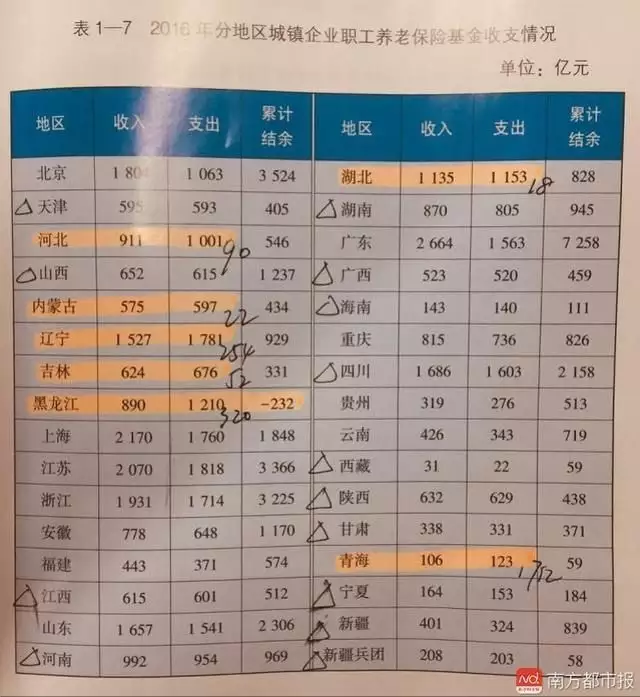 表 1—7 2016 年分地区城镇企业职工养老保险基金收支情况
单位：亿元
地区 收入 支出 累计结余
北京 1 804 1 063 3 524
△天津 595 593 405
河北 911 1 001 546
90
△山西 652 615 1 237
内蒙古 575 597 434
22
辽宁 1 527 1 781 929
254
吉林 624 676 331
52
黑龙江 890 1 210 -232
320
上海 2 170 1 760 1 848
江苏 2 070 1 818 3 366
浙江 1 931 1 714 3 225
安徽 778 648 1 170
福建 443 371 574
△江西 615 601 512
山东 1 657 1 541 2 306
△河南 992 954 969
地区 收入 支出 累计结余
湖北 1 135 1 153 828
18
△湖南 870 805 945
广东 2 664 1 563 7 258
△广西 523 520 459
△海南 143 140 111
重庆 815 736 826
△四川 1 686 1 603 2 158
贵州 319 276 513
云南 426 343 719
△西藏 31 22 59
△陕西 632 629 438
△甘肃 338 331 371
青海 106 123 59
△宁夏 164 153 184
△新疆 401 324 839
△新疆兵团 208 203 58
南方都市报